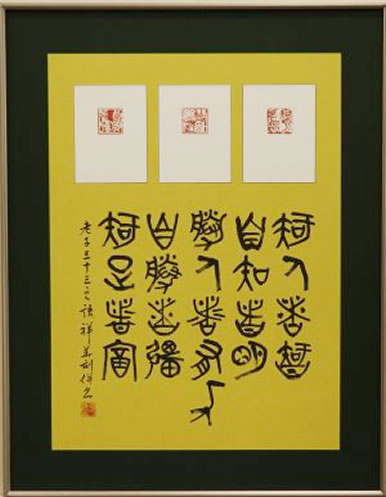 知人者智
自知者明
勝人者有力
自勝者彊
知足者富
老子三十三之語祥刻併書